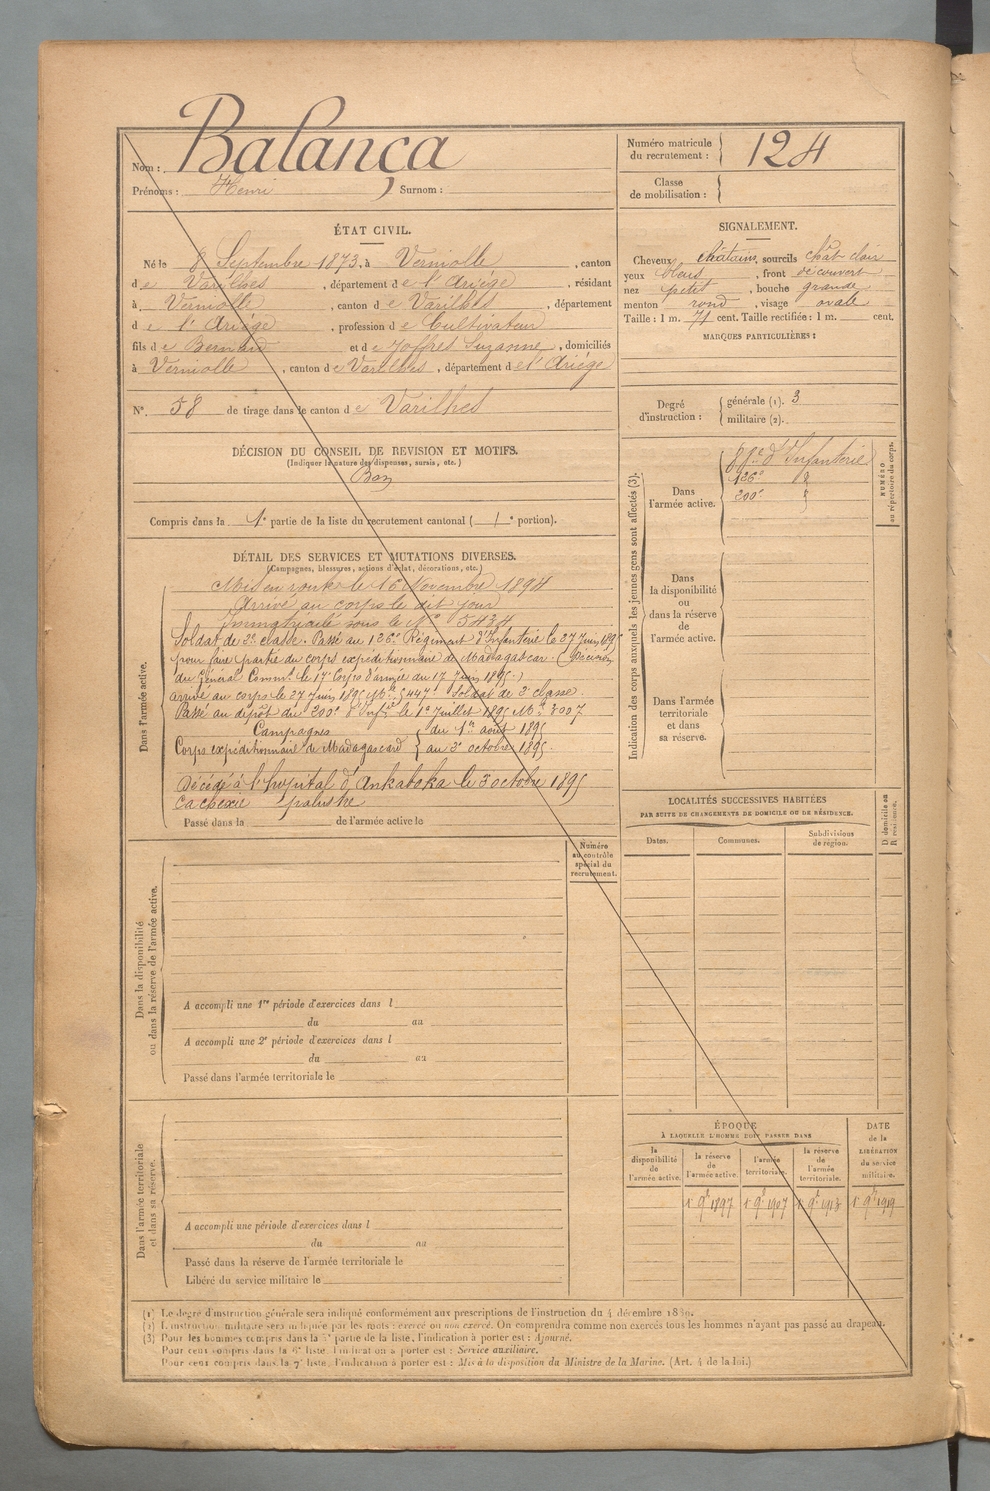 Nom : Balança
Prénoms : Henri Surnom :
Numéro matricule du recrutement : 124
Classe de mobilisation :
ÉTAT CIVIL.
Né le 8 Septembre 1873, à Verniolle , canton
de Varilhes , département de l'Ariège , résidant
à Verniolle , canton de Varilhes , département
de l'Ariège , profession de Cultivateur
fils de Bernard et de Joffres Suzanne , domiciliés
à Verniolle , canton de Varilhes , département de l'Ariège
N°. 58 de tirage dans le canton de Varilhes
SIGNALEMENT.
Cheveux châtains, sourcils chât clair
yeux bleus , front découvert
nez petit , bouche grande
menton rond , visage ovale
Taille : 1 m. 71 cent. Taille rectifiée : 1 m. cent.
MARQUES PARTICULIÈRES :
Degré d'instruction : générale (1). 3
militaire (2).
DÉCISION DU CONSEIL DE REVISION ET MOTIFS.
(Indiquer la nature des dispenses, sursis, etc.)
Bon
Compris dans la 1e partie de la liste du recrutement cantonal ( 1e portion).
DÉTAIL DES SERVICES ET MUTATIONS DIVERSES.
(Campagnes, blessures, actions d'éclat, décorations, etc.)
Dans l'armée active.
Mis en route le 16 Novembre 1894
Arrivé au corps le dit jour
Immatriculé sous le No 5434
Soldat de 2e classe. Passé au 126e Régiment d'Infanterie le 27 Juin 1895
pour faire partie du corps expéditionnaire de Madagascar. (Décision
du Général Commt le 17e Corps d'armée du 17 Juin 1895.)
arrivé au corps le 27 Juin 1895 No 5447 Soldat de 2e classe.
Passé au dépôt du 200e d'Infie le 1er Juillet 1895 No 3007
Campagnes du 1er août 1895
Corps expéditionnaire de Madagascard au 3 octobre 1895.
Décédé à l'hopital d'Ankaboka le 3 octobre 1895
cachexie palustre
Passé dans la de l'armée active le
Indication des corps auxquels les jeunes gens sont affectés (3).
NUMÉRO au répertoire du corps.
Dans l'armée active.
d'Infanterie
126e
200e
Dans la disponibilité ou dans la réserve de l'armée active.
Dans l'armée territoriale et dans sa réserve.
LOCALITÉS SUCCESSIVES HABITÉES
PAR SUITE DE CHANGEMENTS DE DOMICILE OU DE RÉSIDENCE.
Dates. Communes. Subdivisions de région. D. domicile ou R. résidence.
Numéro au contrôle spécial du recrutement.
Dans la disponibilité ou dans la réserve de l'armée active.
A accompli une 1re période d'exercices dans l
du au
A accompli une 2e période d'exercices dans l
du au
Passé dans l'armée territoriale le
Dans l'armée territoriale et dans sa réserve.
A accompli une période d'exercices dans l
du au
Passé dans la réserve de l'armée territoriale le
Libéré du service militaire le
ÉPOQUE
À LAQUELLE L'HOMME DOIT PASSER DANS
la disponibilité de l'armée active.
la réserve de l'armée active.
l'armée territoriale.
la réserve de l'armée territoriale.
DATE de la LIBÉRATION du service militaire.
1r 9e 1897 1r 9e 1907 1r 9e 1913 1r 9e 1919
(1) Le degré d'instruction générale sera indiqué conformément aux prescriptions de l'instruction du 4 décembre 1889.
(2) L'instruction militaire sera indiquée par les mots : exercé ou non exercé. On comprendra comme non exercés tous les hommes n'ayant pas passé au drapeau.
(3) Pour les hommes compris dans la 5e partie de la liste, l'indication à porter est : Ajourné.
Pour ceux compris dans la 6e liste, l'indication à porter est : Service auxiliaire.
Pour ceux compris dans la 7e liste, l'indication à porter est : Mis à la disposition du Ministre de la Marine. (Art. 4 de la loi.)